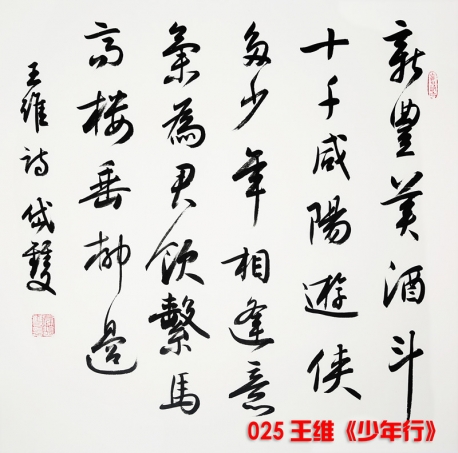 新豐美酒斗
十千咸陽遊俠
多少年相逢意
氣為君飲繫馬
高楼垂柳邊
王維詩 岱雙
025 王维《少年行》